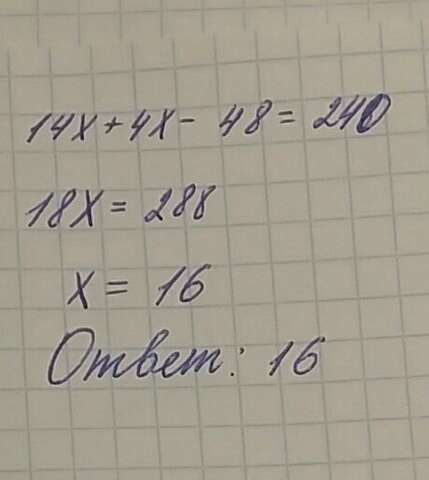 14x+4x- 48=240
18x=288
x=16
Ответ: 16